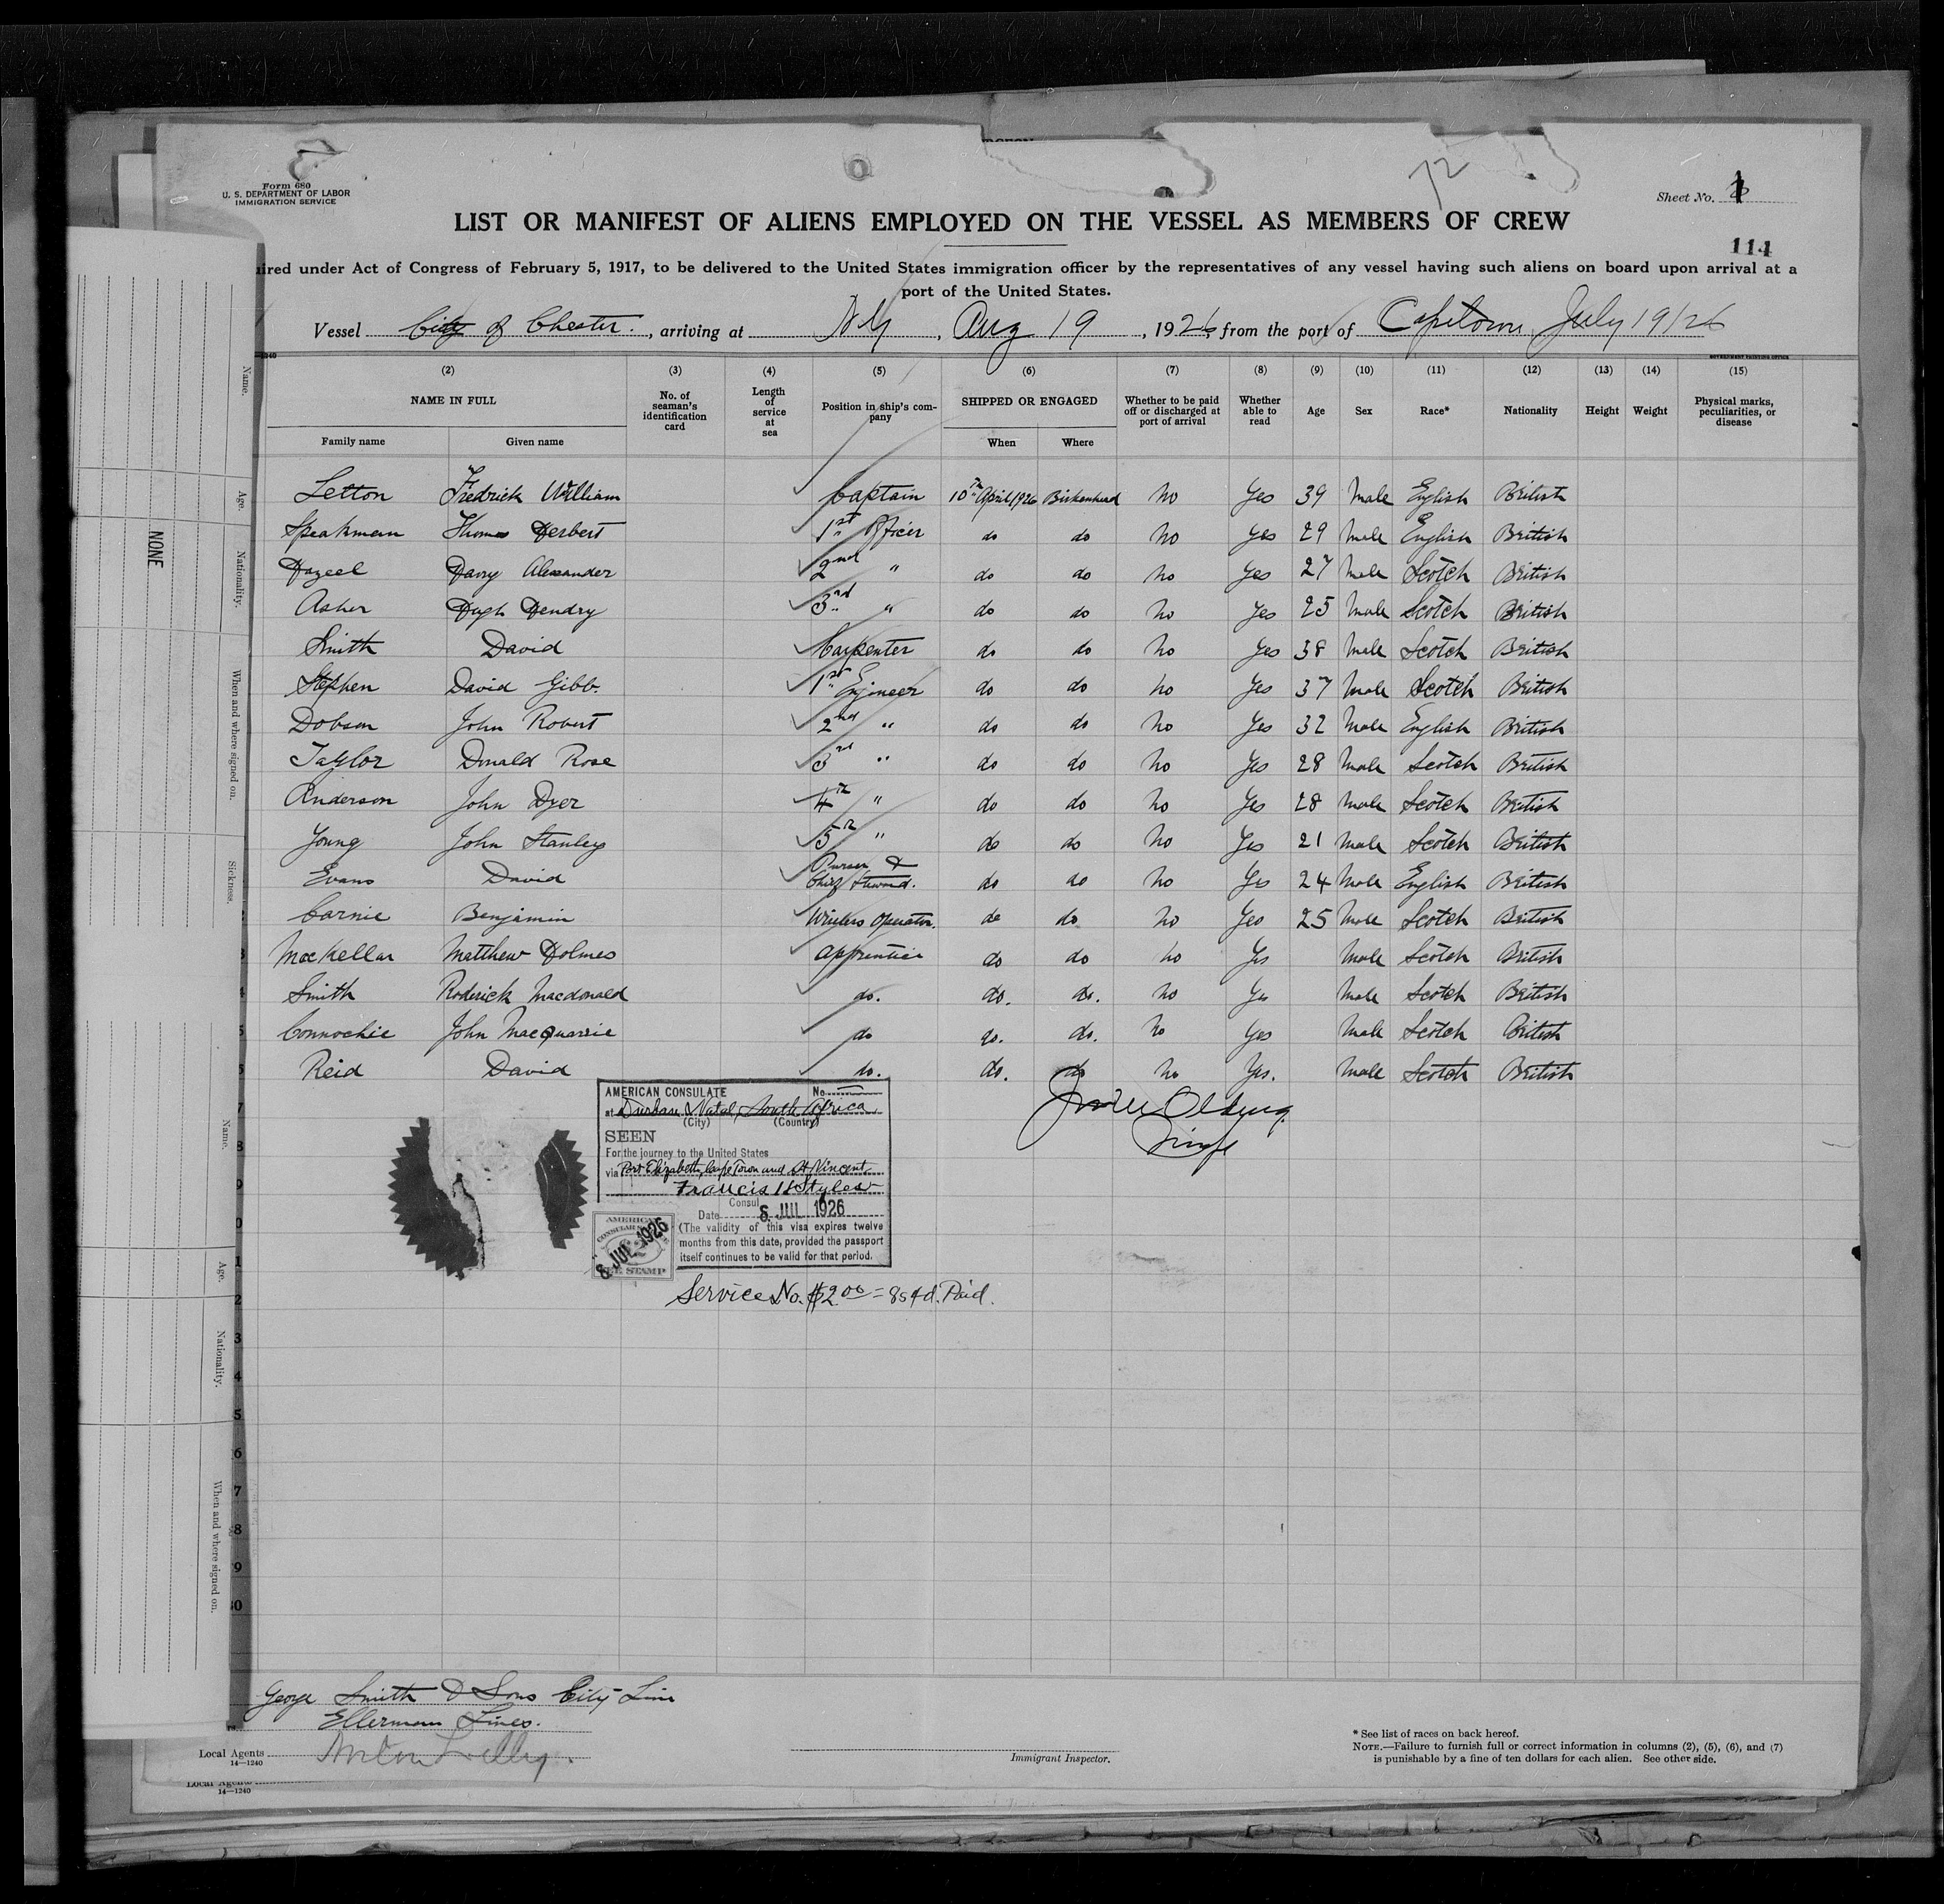 Form 680
U. S. DEPARTMENT OF LABOR
IMMIGRATION SERVICE
72
Sheet No. 1
LIST OR MANIFEST OF ALIENS EMPLOYED ON THE VESSEL AS MEMBERS OF CREW
114
ired under Act of Congress of February 5, 1917, to be delivered to the United States immigration officer by the representatives of any vessel having such aliens on board upon arrival at a
port of the United States.
Vessel City of Chester. , arriving at NY , Aug 19 , 1926, from the port of Capetown July 19/26
(2) (3) (4) (5) (6) (7) (8) (9) (10) (11) (12) (13) (14) (15)
NAME IN FULL No. of seaman's identification card Length of service at sea Position in ship's company SHIPPED OR ENGAGED Whether to be paid off or discharged at port of arrival Whether able to read Age Sex Race* Nationality Height Weight Physical marks, peculiarities, or disease
Family name Given name When Where
Letton Fredrick William Captain 10th April 1926 Birkenhead No Yes 39 Male English British
Speakman Thomas Herbert 1st Officer do do No Yes 29 Male English British
Hazeel Harry Alexander 2nd " do do No Yes 27 Male Scotch British
Asher Hugh Hendry 3rd " do do No Yes 25 Male Scotch British
Smith David Carpenter do do No Yes 38 Male Scotch British
Stephen David Gibb. 1st Engineer do do No Yes 37 Male Scotch British
Dobson John Robert 2nd " do do No Yes 32 Male English British
Taylor Donald Rose 3rd " do do No Yes 28 Male Scotch British
Anderson John Dyer 4th " do do No Yes 28 Male Scotch British
Young John Stanley 5th " do do No Yes 21 Male Scotch British
Evans David Purser & Chief Steward. do do No Yes 24 Male English British
Carnie Benjamin Wireless Operator. do do No Yes 25 Male Scotch British
MacKellar Matthew Holmes Apprentice do do No Yes Male Scotch British
Smith Roderick Macdonald do. do. do. No Yes Male Scotch British
Connochie John Macquarrie do do. do. No Yes Male Scotch British
Reid David do. do. do No Yes. Male Scotch British
AMERICAN CONSULATE No.
at Durban Natal, South Africa
(City) (Country)
SEEN
For the journey to the United States
via Port Elizabeth, Cape Town and St Vincent
Francis H Styles
Consul
Date 8 JUL 1926
(The validity of this visa expires twelve
months from this date, provided the passport
itself continues to be valid for that period.
AMERICAN
CONSULAR SERVICE
8 JUL 1926
FEE STAMP
Service No. $2.00 = 8s4d. Paid.
George Smith & Sons City Line
Ellerman Lines.
Local Agents Norton Lilly
14—1240
Immigrant Inspector.
* See list of races on back hereof.
NOTE.—Failure to furnish full or correct information in columns (2), (5), (6), and (7)
is punishable by a fine of ten dollars for each alien. See other side.
Local Agents
14—1240
Name.
Age.
NONE
Nationality.
When and where signed on.
Sickness.
Name.
Age.
Nationality.
When and where signed on.